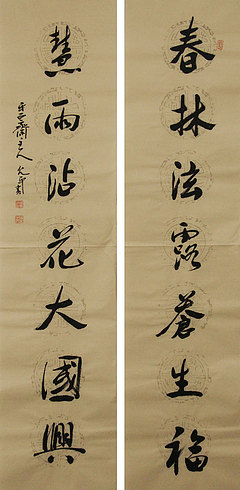 春林法露蒼生福
慧雨沾花大國興